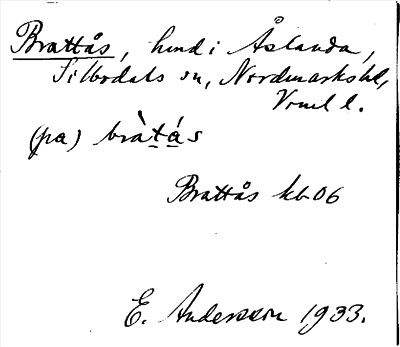 Brattås, hmd i Åslanda,
Silbodals sn, Nordmarks hd,
Vrml l.
(pa) bràtás
Brattås kb 06
E. Andersson 1933.